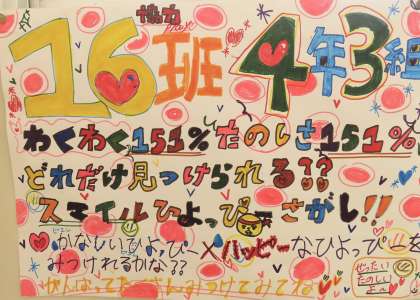 協力
16班 4年3組
わくわく151%たのしさ151%
どれだけ見つけられる??
スマイルひよっぴーさがし!!
かなしいひよっぴー×ハッピーなひよっぴーを
みつけれるかな??
がんばってたくさんみつけてみてね
ぜったい
たのしい
よ〜